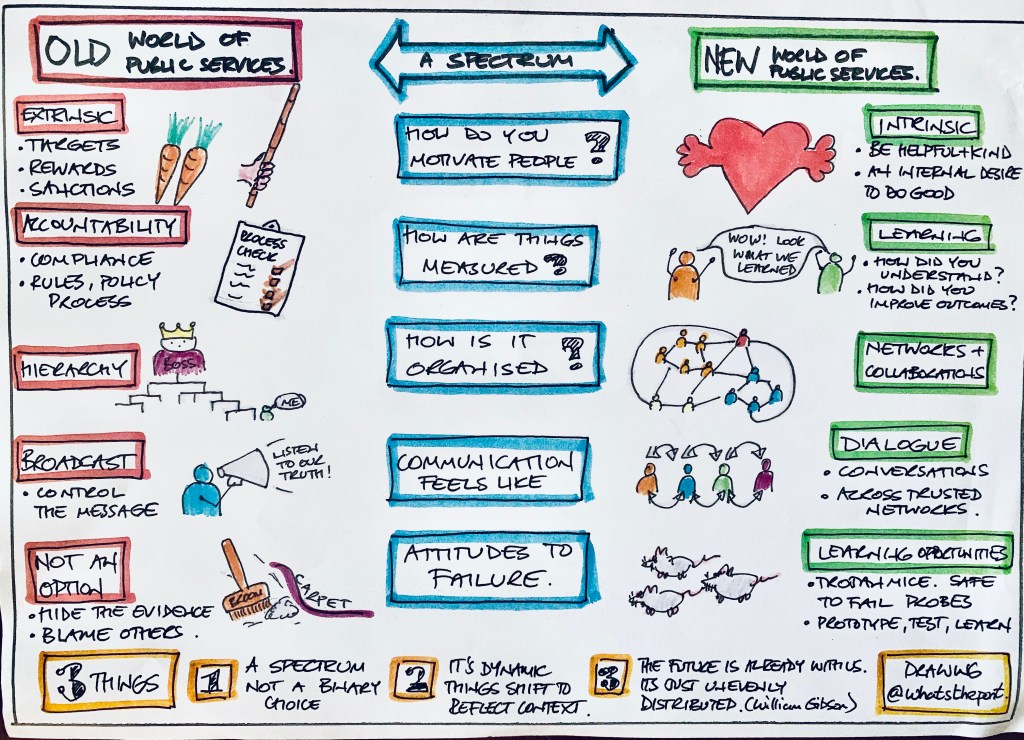 OLD WORLD OF
PUBLIC SERVICES.
A SPECTRUM
NEW WORLD OF
PUBLIC SERVICES.
EXTRINSIC
• TARGETS
• REWARDS
• SANCTIONS
HOW DO YOU
MOTIVATE PEOPLE?
INTRINSIC
• BE HELPFUL + KIND
• AN INTERNAL DESIRE
TO DO GOOD
ACCOUNTABILITY
• COMPLIANCE
• RULES, POLICY
PROCESS
PROCESS
CHECK
HOW ARE THINGS
MEASURED?
WOW! LOOK
WHAT WE
LEARNED
LEARNING
• HOW DID YOU
UNDERSTAND?
• HOW DID YOU
IMPROVE OUTCOMES?
HIERARCHY
BOSS
ME
HOW IS IT
ORGANISED?
NETWORKS +
COLLABORATIONS
BROADCAST
• CONTROL
THE MESSAGE
LISTEN
TO OUR
TRUTH!
COMMUNICATION
FEELS LIKE
DIALOGUE
• CONVERSATIONS
• ACROSS TRUSTED
NETWORKS.
NOT AN
OPTION
• HIDE THE EVIDENCE
• BLAME OTHERS.
BROOM
CARPET
ATTITUDES TO
FAILURE.
LEARNING OPPORTUNITIES
• TROJAN MICE. SAFE
TO FAIL PROBES
• PROTOTYPE, TEST, LEARN
3 THINGS
1
A SPECTRUM
NOT A BINARY
CHOICE
2
IT'S DYNAMIC
THINGS SHIFT TO
REFLECT CONTEXT.
3
THE FUTURE IS ALREADY WITH US.
ITS JUST UNEVENLY
DISTRIBUTED. (William Gibson)
DRAWING
@whatsthepont.